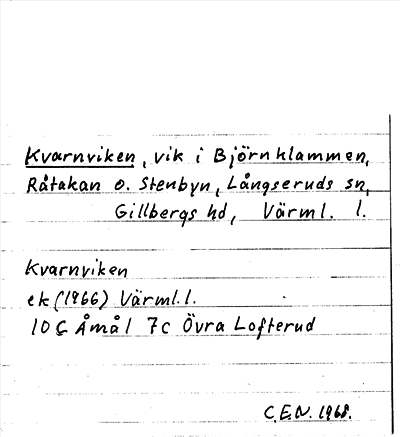 Kvarnviken, vik i Björnklammen,
Råtakan o. Stenbyn, Långseruds sn,
Gillbergs hd, Värml. l.
Kvarnviken
ek (1966) Värml. l.
10 C Åmål 7c Övra Lofterud
C.E.N. 1968.